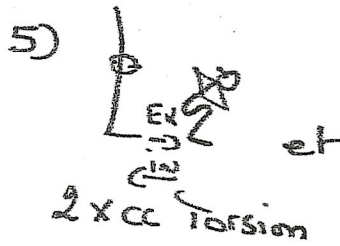 5)
Ex
et
in
2 x cc Torsion